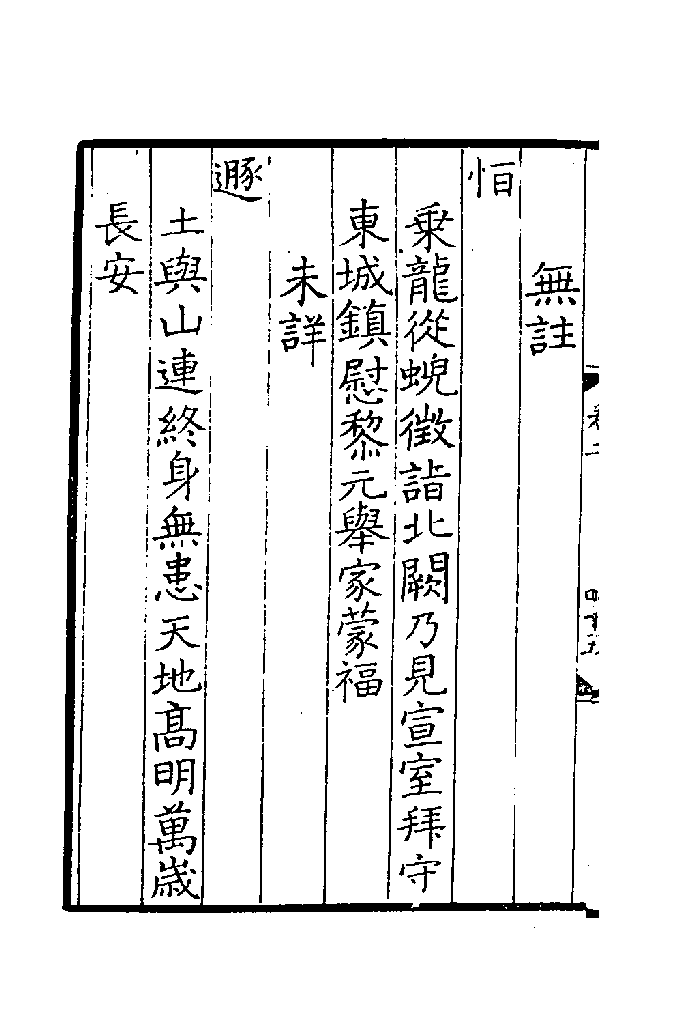 無註
恒
乗龍從蜺徵詣北闕乃見宣室拜守
東城鎮慰黎元舉家蒙福
未詳
遯
土與山連終身無患天地髙明萬歳
長安